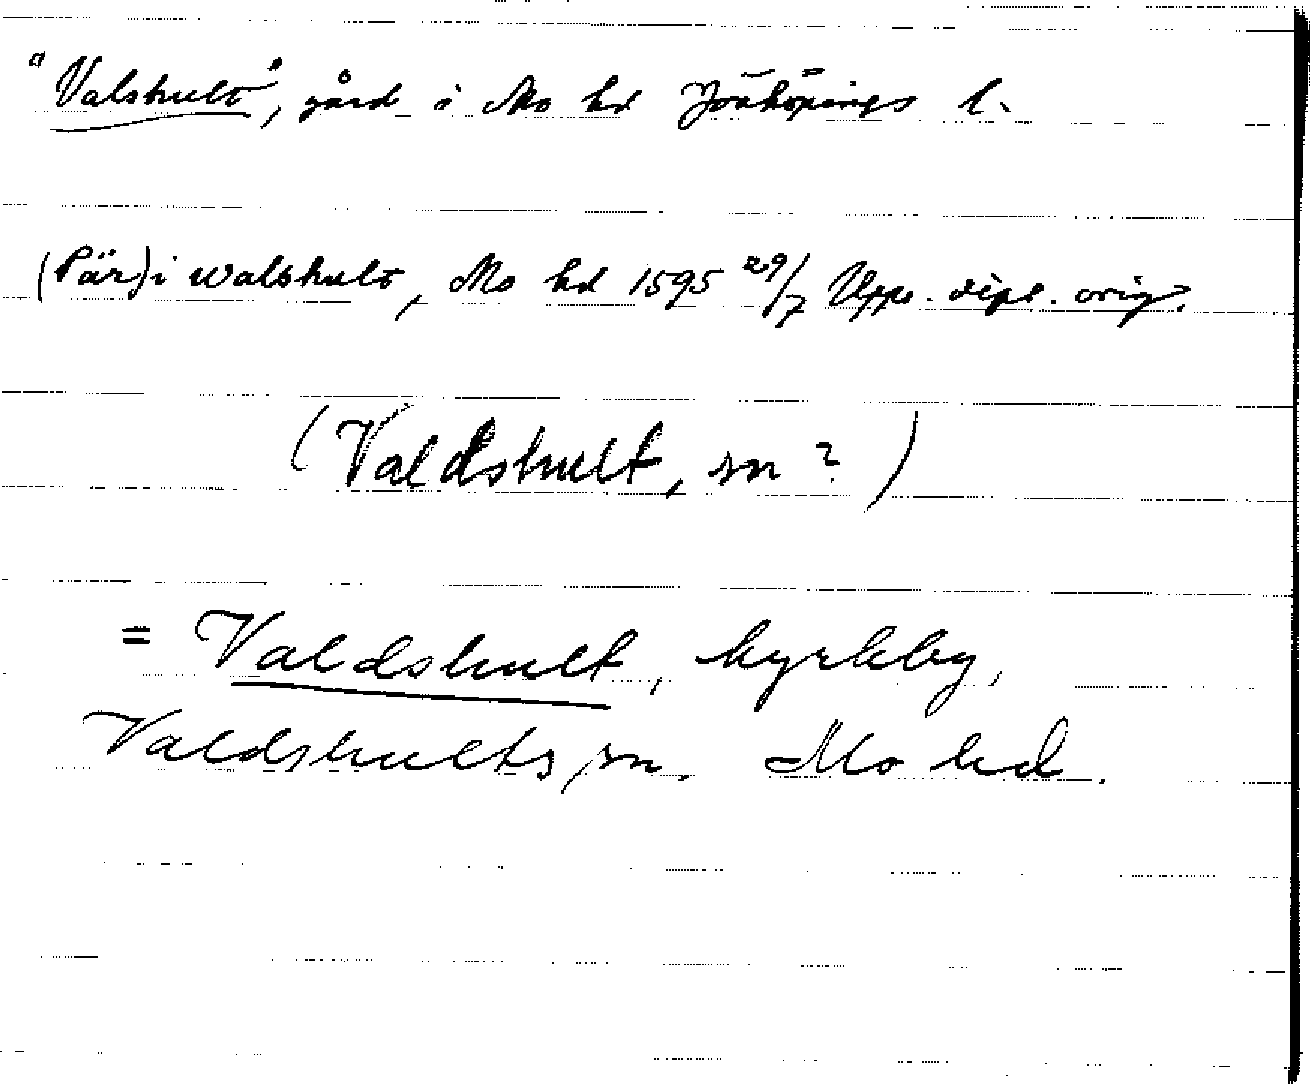 "Valshult", gård i Mo hd Jönköpings l.
(Pär) i Walshult, Mo hd 1595 29/7 Upps. dipl. orig.
(Valdshult, sn?)
= Valdshult, kyrkby,
Valdshults sn. Mo hd.